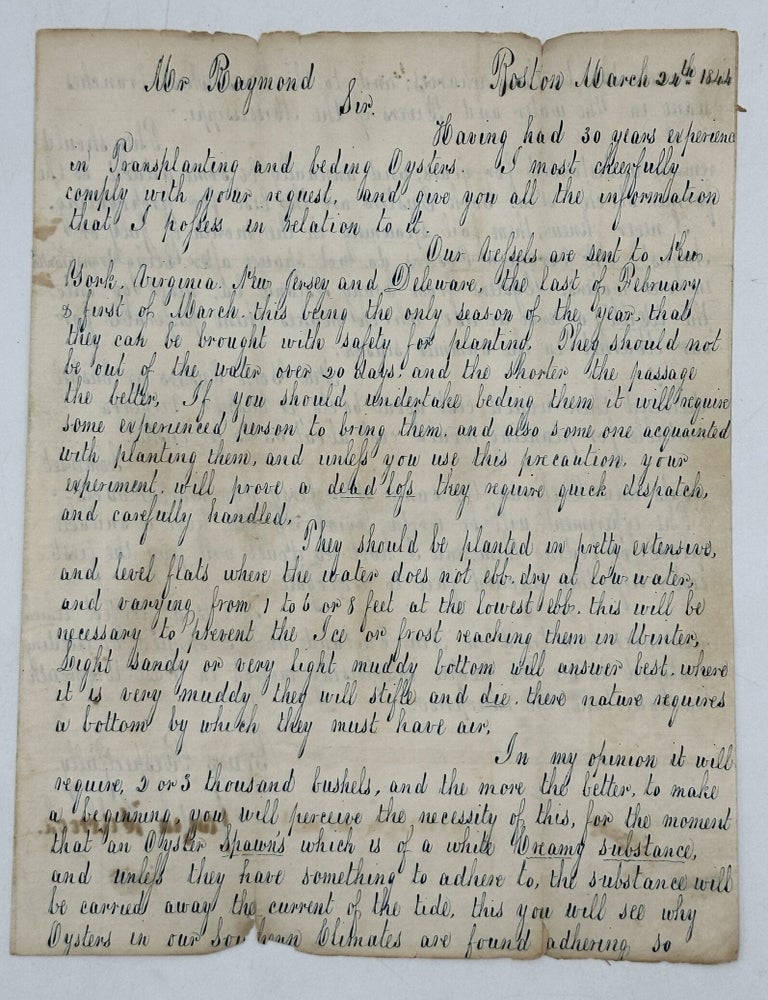 Mr Raymond Boston March 24th 1844
Sir.
Having had 30 years experienc
in Transplanting and beding Oysters. I most cheerfully
comply with your request, and give you all the information
that I possess in relation to it.
Our Vessels are sent to New
York. Virginia. New Jersey and Deleware, the last of February
& first of March. this being the only season of the year, that
they can be brought with safety for planting. They should not
be out of the water over 20 days. and the shorter the passage
the better, If you should undertake beding them it will require
some experienced person to bring them. and also some one acquainted
with planting them, and unless you use this precaution, your
experiment. will prove a dead loss they require quick dispatch,
and carefully handled,
They should be planted in pretty extensive,
and level flats where the water does not ebb. dry at low water,
and varying from 1 to 6 or 8 feet at the lowest ebb. this will be
necessary to prevent the Ice or frost reaching them in Winter,
Light sandy or very light muddy bottom will answer best. where
it is very muddy they will stifle and die. there nature requires
a bottom by which they must have air,
In my opinion it will
require, 2 or 3 thousand bushels, and the more the better, to make
a beginning, you will perceive the necessity of this, for the moment
that an Oyster Spawn's which is of a white Creamy substance,
and unless they have something to adhere to, the substance will
be carried away the current of the tide, this you will see why
Oysters in our Climates are found adhering so